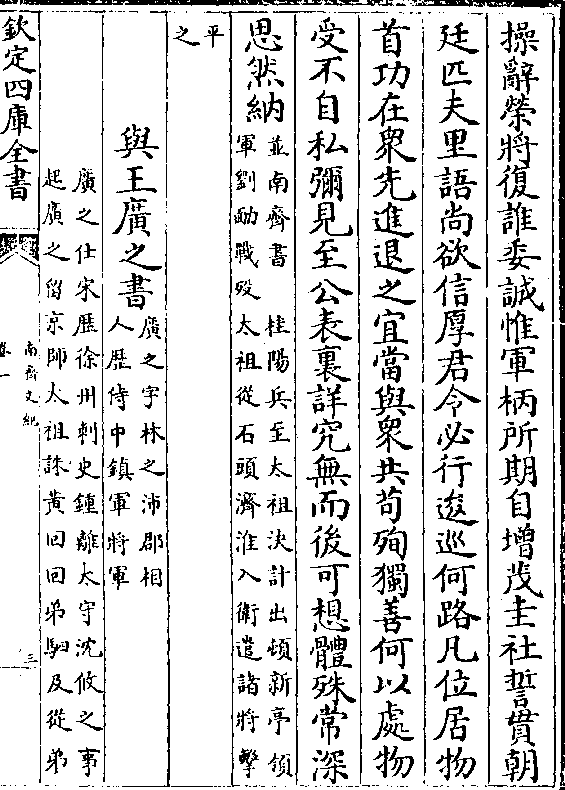 操辭榮將復誰委誠惟軍柄所期自增茂圭社誓貫朝
廷匹夫里語尚欲信厚君令必行逡巡何路凡位居物
首功在衆先進退之宜當與衆共苟殉獨善何以處物
受不自私彌見至公表裏詳究無而後可想體殊常深
思然納
並南齊書　桂陽兵至太祖決計出頓新亭領
軍劉勔戰歿太祖從石頭濟淮入衛遣諸將擊
平
之
與王廣之書
廣之字林之沛郡相
人歷侍中鎮軍將軍
廣之仕宋歷徐州刺史鍾離太守沈攸之事
起廣之留京師太祖誅黃回回弟駟及從弟
欽定四庫全書
南齊文紀
卷一
三